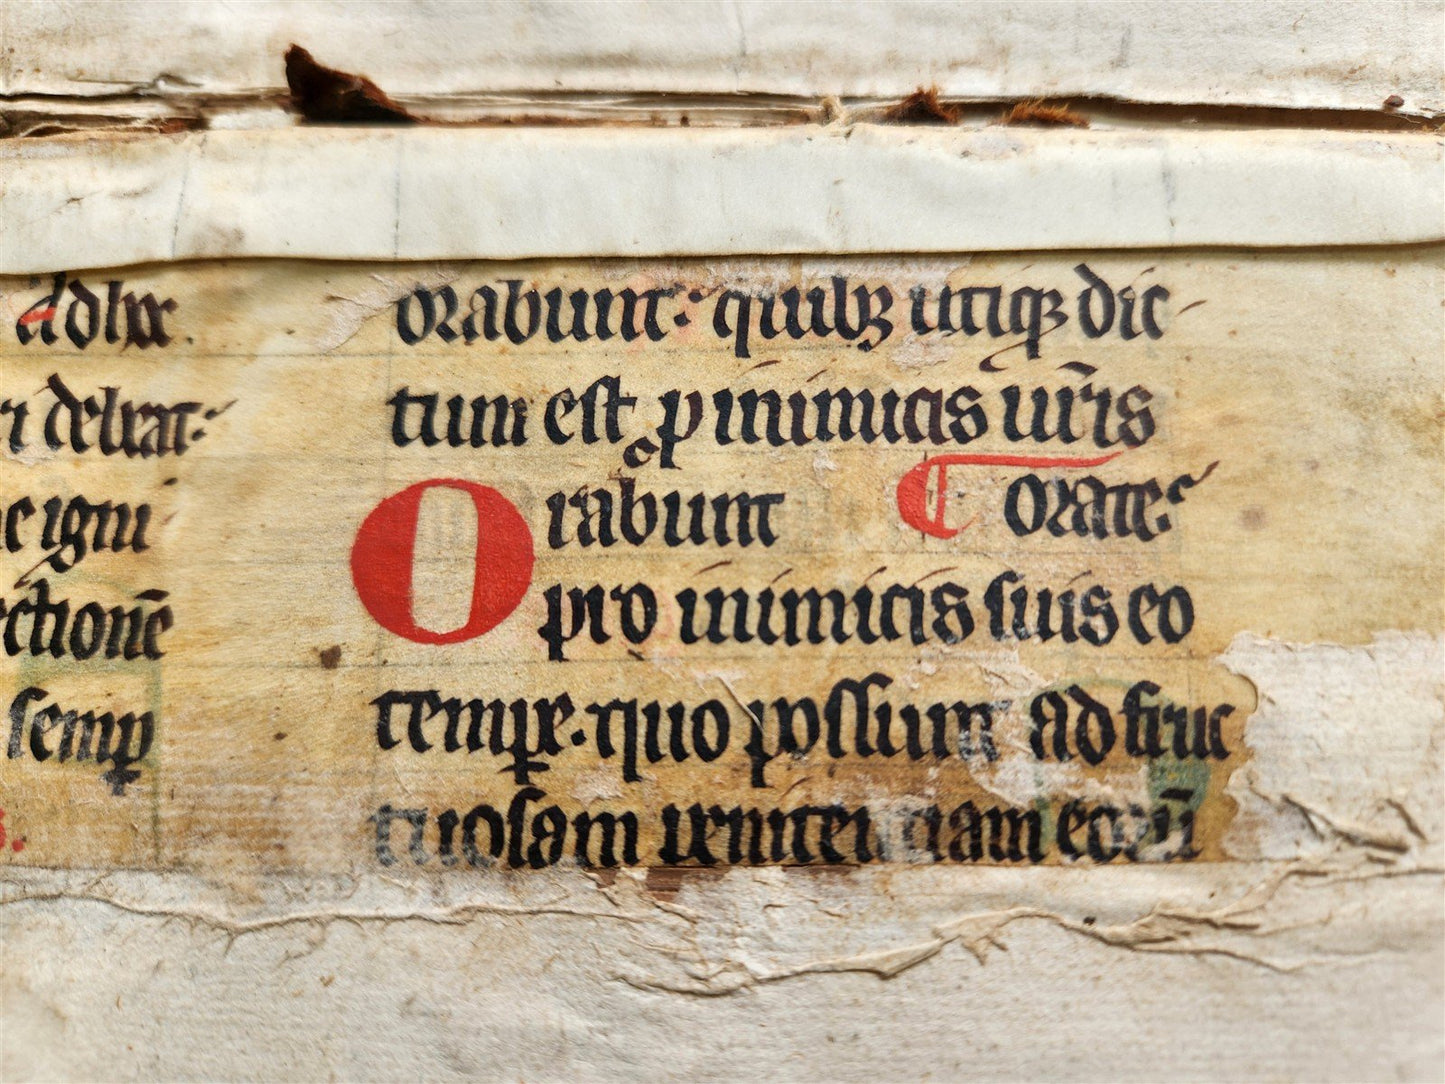 Adhx
delxat:
c igni
ctionē
semꝑ
orabunt: quibꝫ utiqꝫ dic
tum est ꝓ inimicis ur̄is
Orabunt orate:
pro inimicis suis eo
tempꝛe. quo possunt ad fruc
tuosam uenire eciam eoꝝū